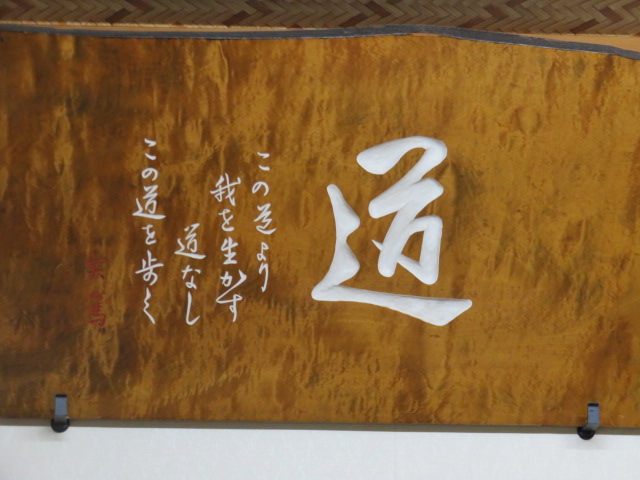 道
この道より
我を生かす
道なし
この道を歩く